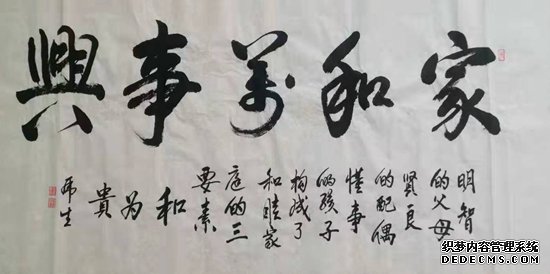 家和萬事興
明智
的父母
賢良
的配偶
懂事
的孩子
构成了
和睦家
庭的三
要素
和
为
貴
织梦内容管理系统
DEDECMS.COM